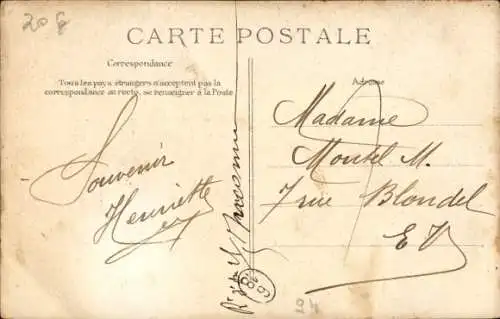 CARTE POSTALE
Correspondance
Tous les pays étrangers n'acceptent pas la
correspondance au recto, se renseigner à la Poste
Adresse
Souvenir
Henriette
Madame
Montel M.
7 rue Blondel
E V
24